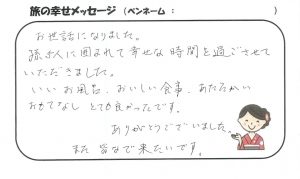 旅の幸せメッセージ（ペンネーム： ）
お世話になりました。
孫4人に囲まれて幸せな時間を過ごさせて
いただきました。
いいお風呂、おいしい食事、あたたかい
おもてなし とても良かったです。
ありがとうございました。
また 皆なで来たいです。